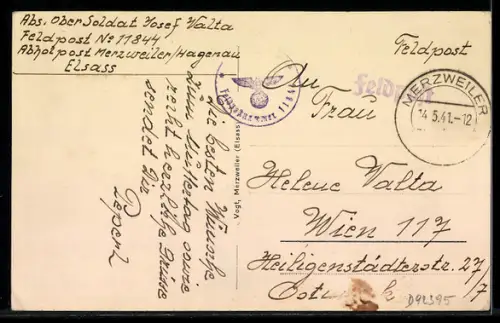 Abs. Ober Soldat Josef Valta
Feldpost No 11844
Abholpost Merzweiler/Hagenau
Elsass
Feldpost
Feldpost
MERZWEILER
14.5.41.-12
An
Frau
Helene Valta
Wien 117
Heiligenstädterstr. 27/
7
Ostmark
Die besten Wünsche
zum Muttertag sowie
recht herzliche Grüsse
sendet Dir
Peperl
Vogt, Merzweiler (Elsass)
D92395